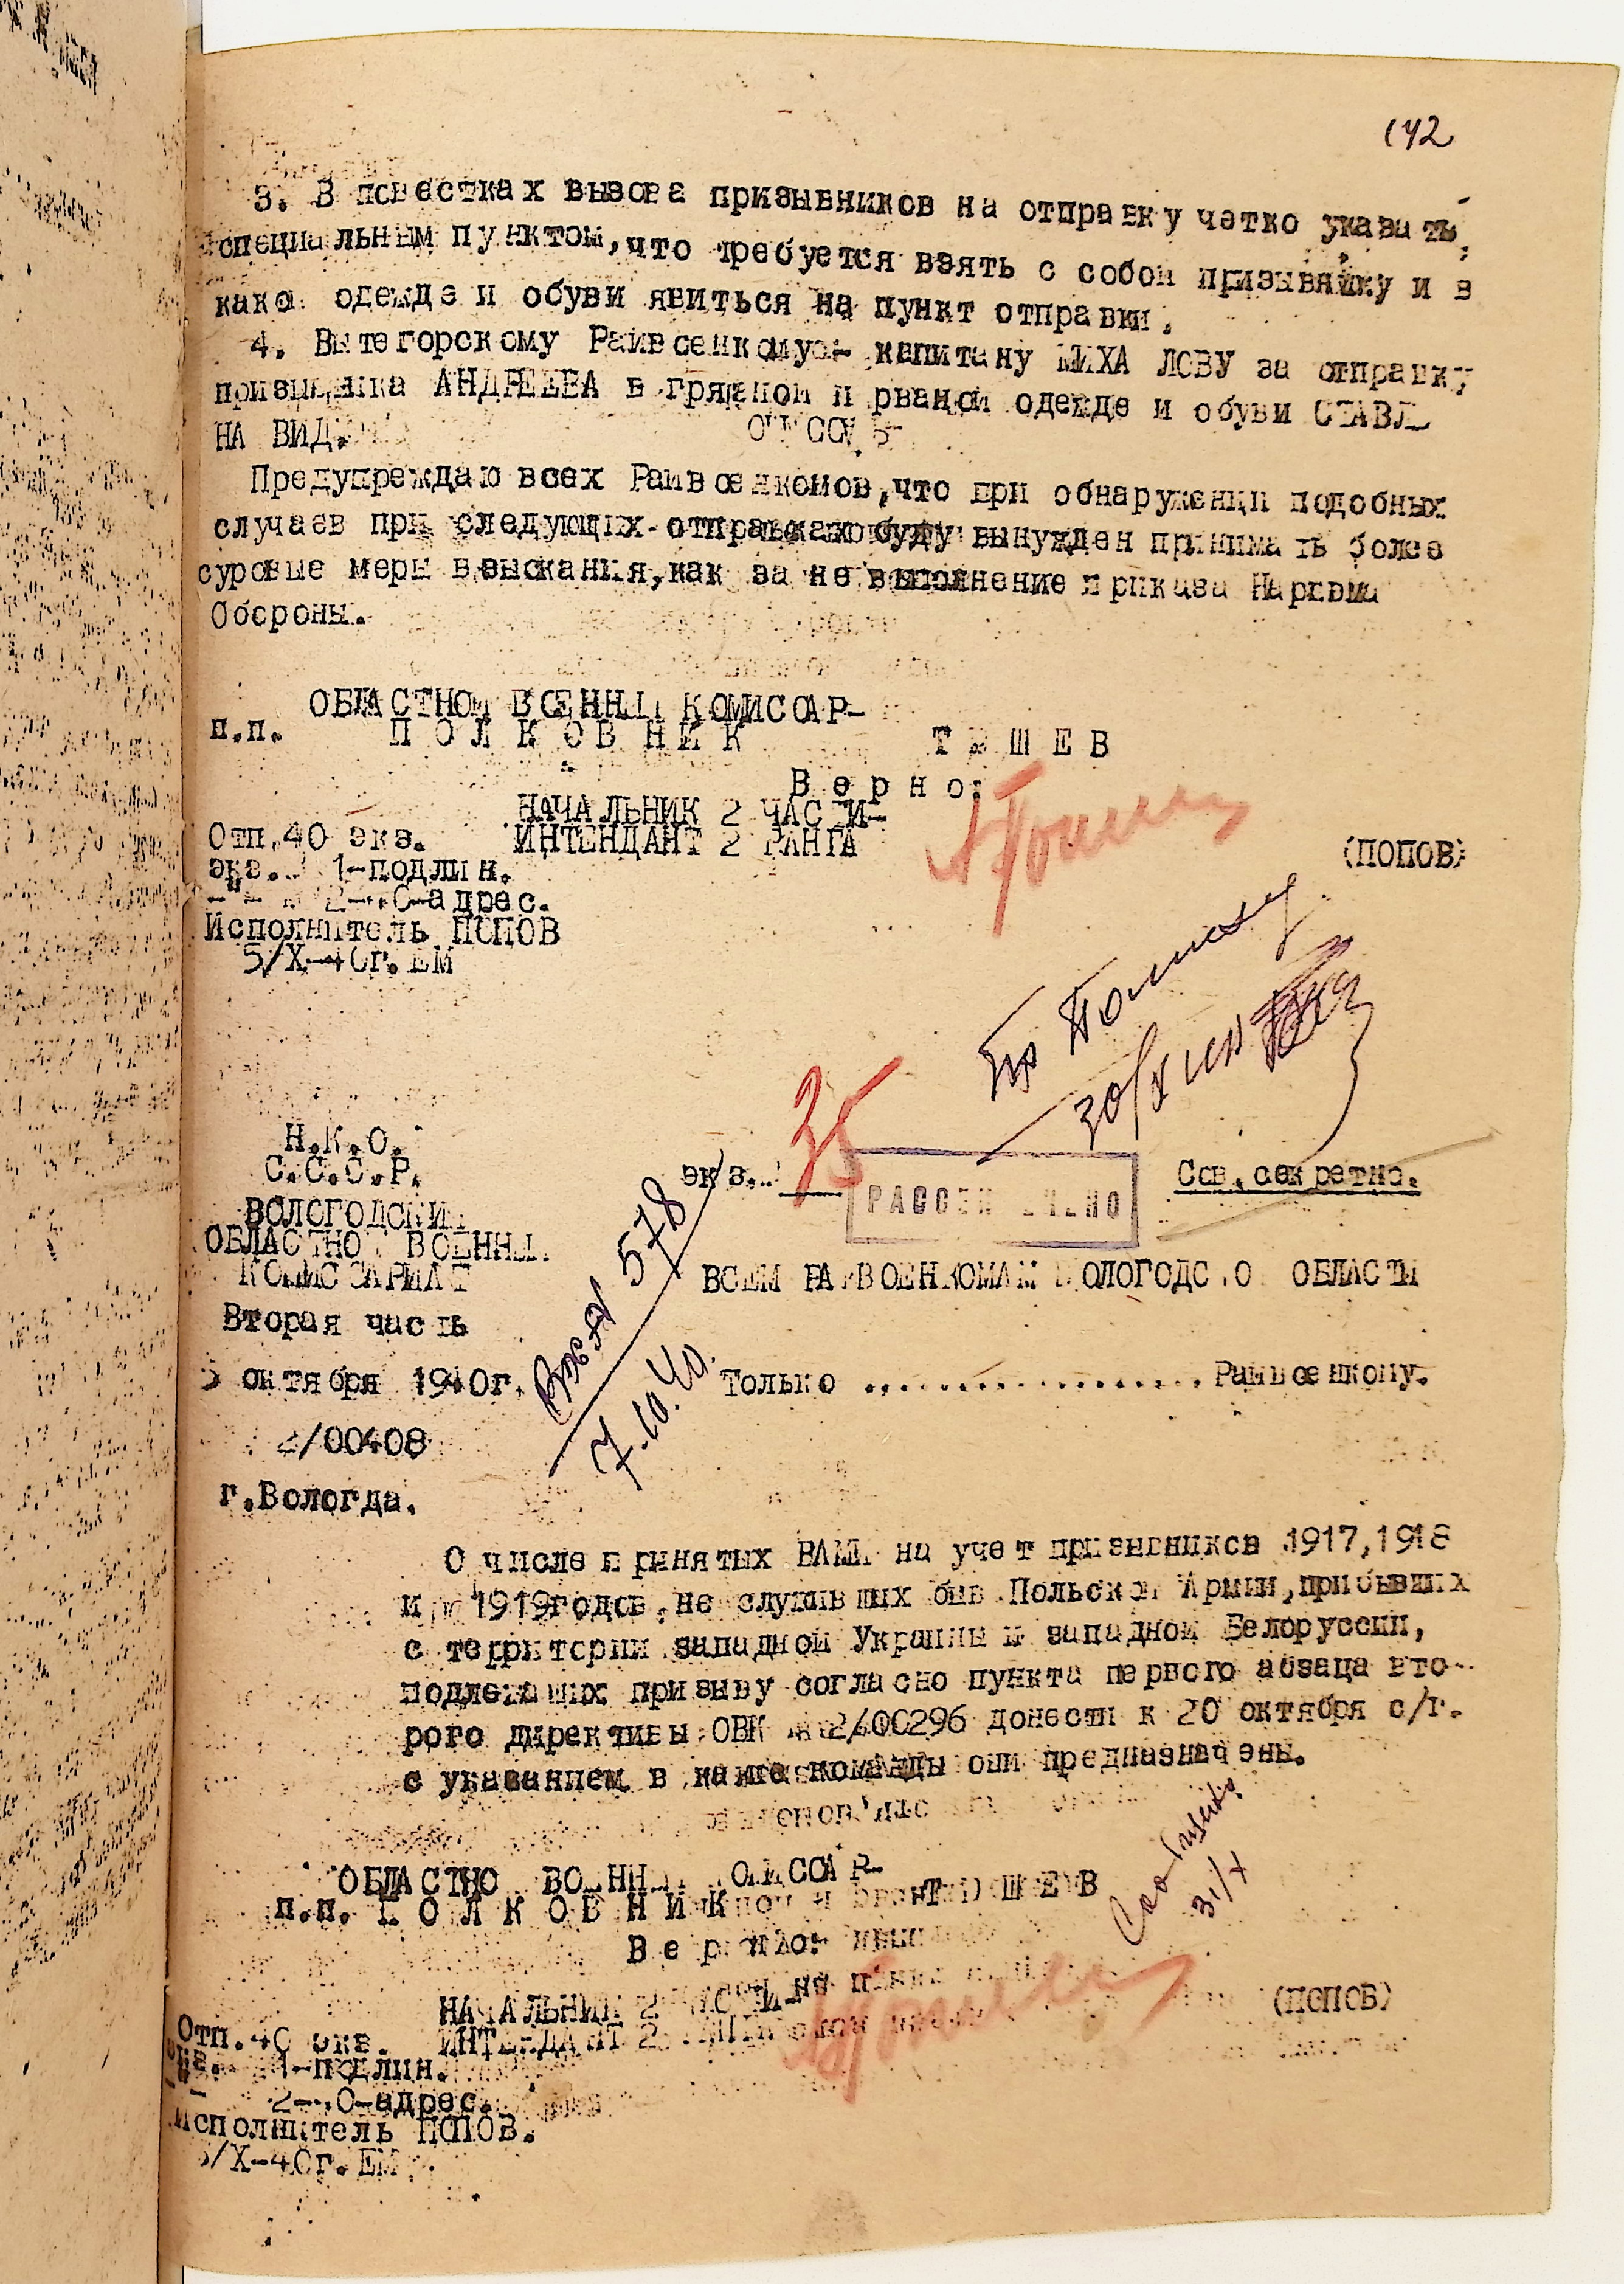 142
3. В повестках вызова призывников на отправку четко указать
специальным пунктом, что требуется взять с собой призывнику и в
какой одежде и обуви явиться на пункт отправки.
4. Вытегорскому Райвоенкому- капитану МИХАЙЛОВУ за отправку
призывника АНДРЕЕВА в грязной и рваной одежде и обуви СТАВЛЮ
НА ВИД.
Предупреждаю всех Райвоенкомов, что при обнаружении подобных
случаев при следующих отправках буду вынужден принимать более
суровые меры взыскания, как за не выполнение приказа Наркома
Обороны.
ОБЛАСТНОЙ ВОЕННЫЙ КОМИССАР-
п.п. П О Л К О В Н И К Т Я Ш Е В
В е р н о:
НАЧАЛЬНИК 2 ЧАСТИ-
ИНТЕНДАНТ 2 РАНГА (ПОПОВ)
Отп. 40 экз.
экз. 1-подлин.
-"- 2-40-адрес.
Исполнитель ПОПОВ
5/X-40г. ЕМ
35
Н.К.О.
С.С.С.Р.
ВОЛОГОДСКИЙ
ОБЛАСТНОЙ ВОЕННЫЙ
КОМИССАРИАТ
Вторая часть
5 октября 1940г.
2/00408
г. Вологда.
578
7.10.40.
экз.
РАССЕКРЕЧЕНО
Сов. секретно.
ВСЕМ РАЙВОЕНКОМАМ ВОЛОГОДСКОЙ ОБЛАСТИ
Только .................... Райвоенкому.
О числе принятых ВАМИ на учет призывников 1917, 1918
и 1919 годов, не служивших быв. Польской Армии, прибывших
с территории западной Украины и западной Белоруссии,
подлежащих призыву согласно пункта первого абзаца вто-
рого директивы ОВК № 2/00296 донести к 20 октября с/г.
с указанием в какие команды они предназначены.
ОБЛАСТНОЙ ВОЕННЫЙ КОМИССАР-
п.п. П О Л К О В Н И К Т Я Ш Е В
В е р н о:
31/X
НАЧАЛЬНИК 2 ЧАСТИ-
ИНТЕНДАНТ 2 РАНГА (ПОПОВ)
Отп. 40 экз.
экз. 1-подлин.
2-40-адрес.
Исполнитель ПОПОВ.
5/X-40г. ЕМ